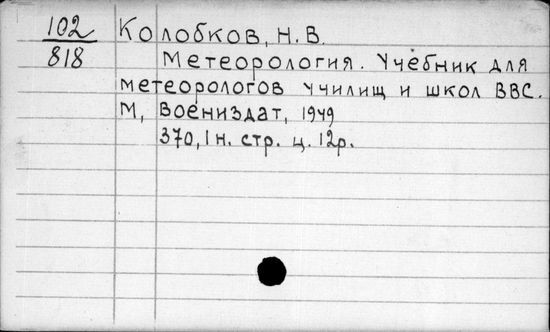 102
818
Колобков, Н.В.
Метеорология. Учебник для
метеорологов училищ и школ ВВС.
М, Воениздат, 1949
370, 1 н. стр. ц. 12р.